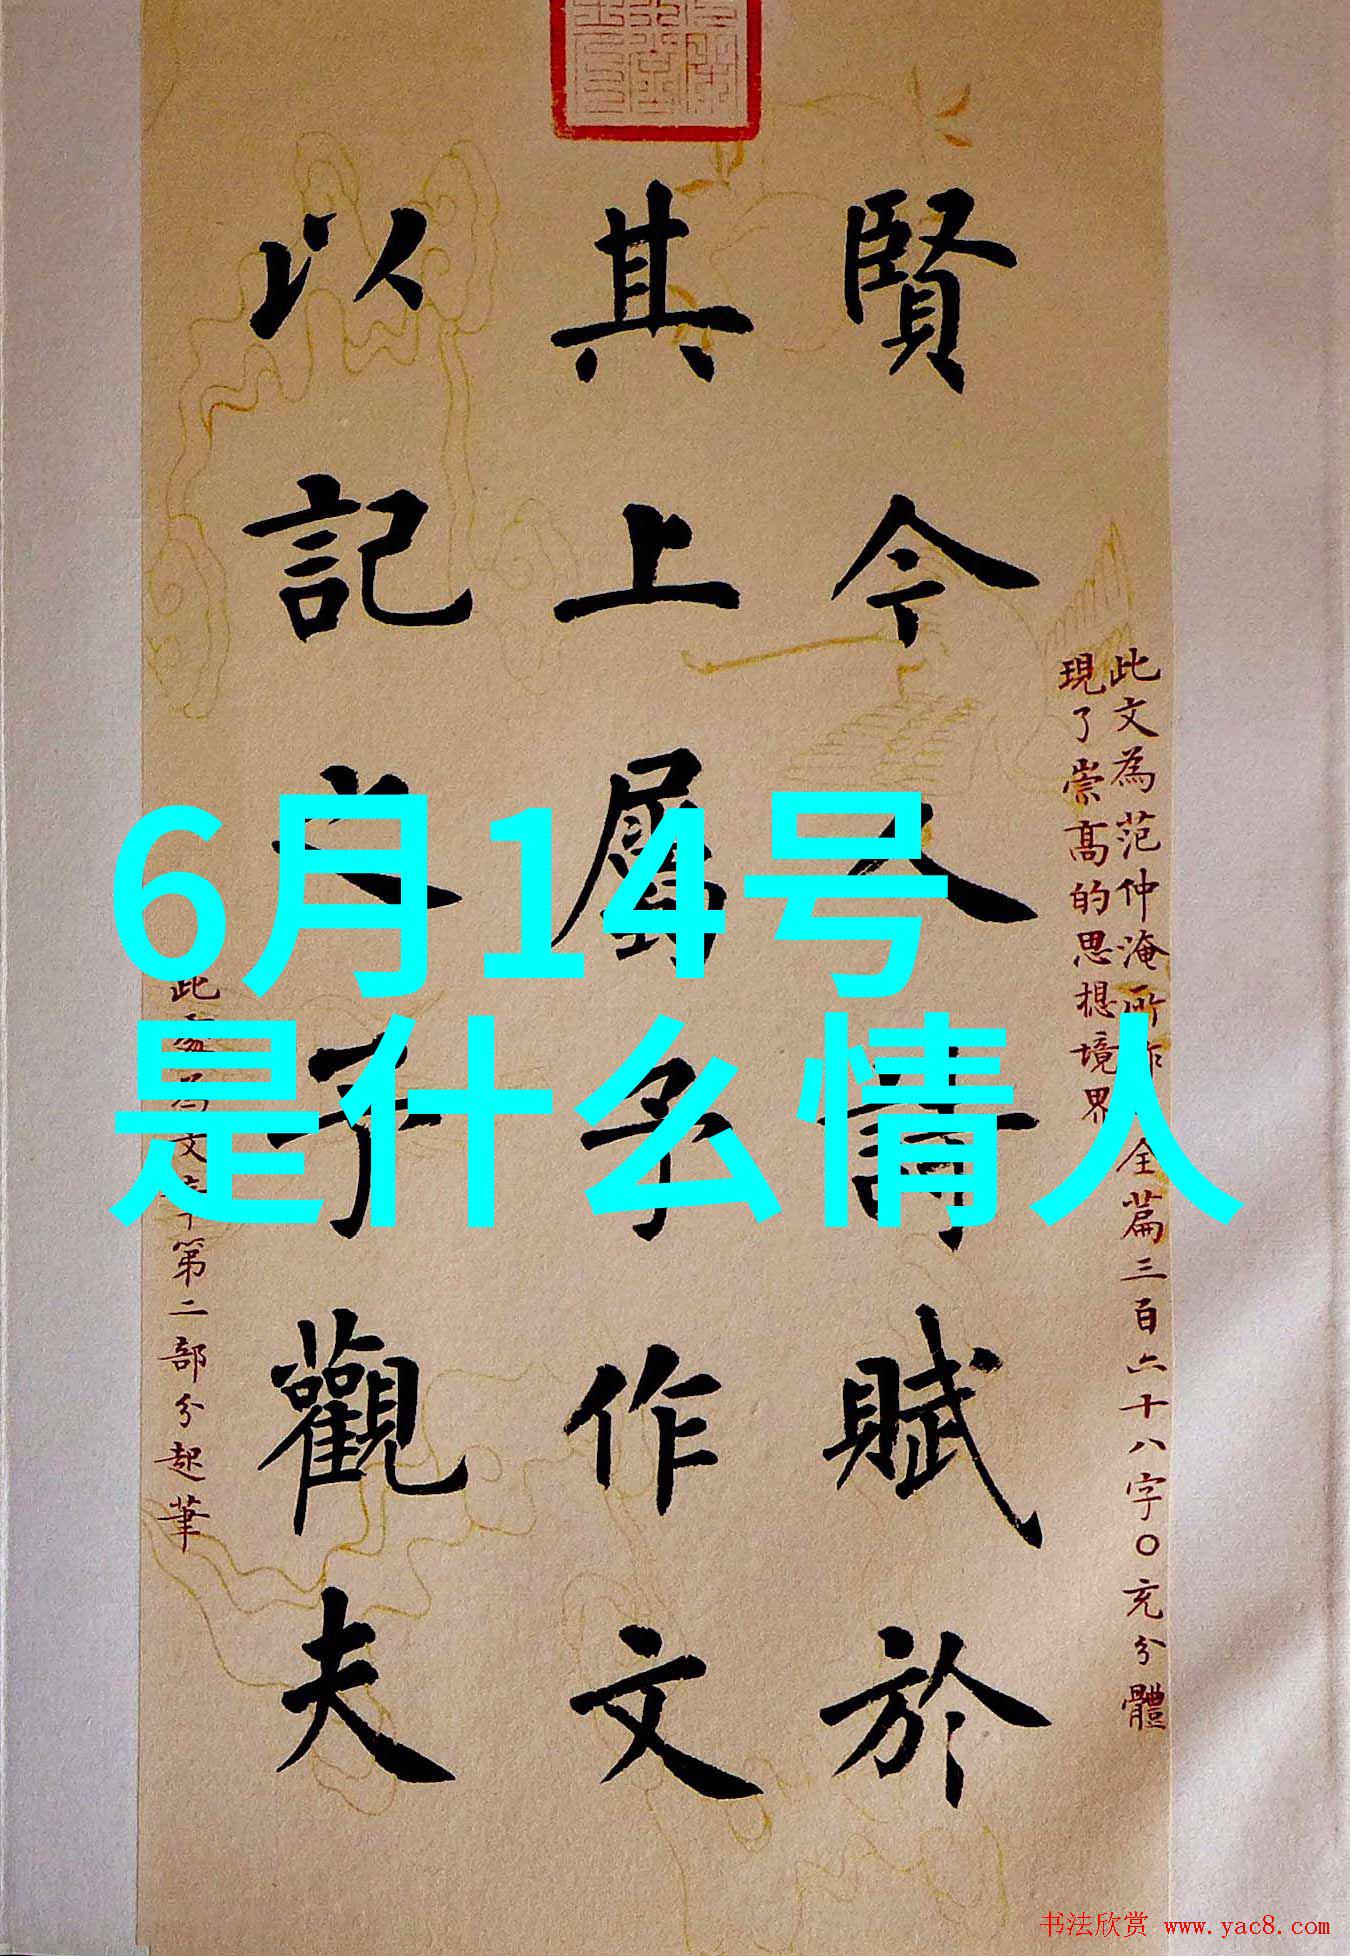 6月14号
是什么情人
賢今人詩賦於
其上屬予作文
以記之予觀夫
此文為范仲淹所作全篇三百六十八字〇充分體
現了崇高的思想境界
第二部分起筆
书法欣赏 www.yac8.com